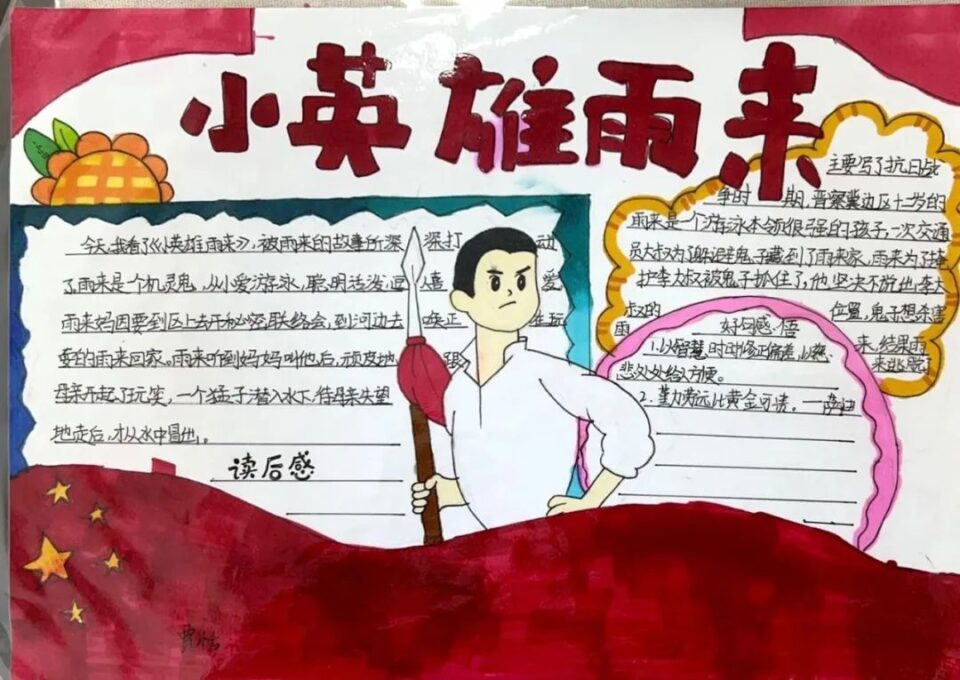 小英雄雨来
今天,我看了《小英雄雨来》,被雨来的故事所深深打动
了雨来是个机灵鬼,从小爱游泳,聪明活泼 人喜爱
雨来妈因要到区上去开 联络会,到河边去唤正在玩
耍的雨来回家。雨来听到妈妈叫他后,顽皮地跟
母亲开起了玩笑,一个猛子潜入水下,待母亲失望
地走后,才从水中冒出。
读后感
主要写了抗日战
争时期,晋察冀边区十二岁的
雨来是一个游泳本领很强的孩子,一次交通
员大叔为了躲 鬼子藏到了雨来家,雨来为了掩
护李大叔被鬼子抓住了,他坚决不说出李大
叔的位置,鬼子想杀害
雨来,结果雨
来逃脱了
好句感悟
1.以智慧时时修正偏差,以慈
悲处处给人方便。
2.勤劳远比黄金可贵。——萨迪